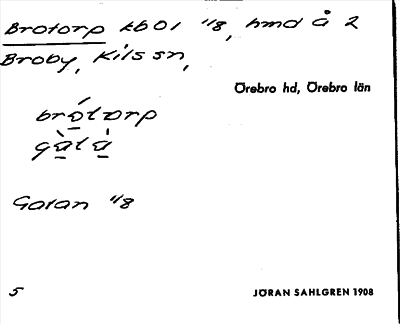 Brotorp tb 01 1/8, hmd å 2
Broby, Kils sn,
Örebro hd, Örebro län
brótorp
gàlà
Galan 1/8
5
JÖRAN SAHLGREN 1908